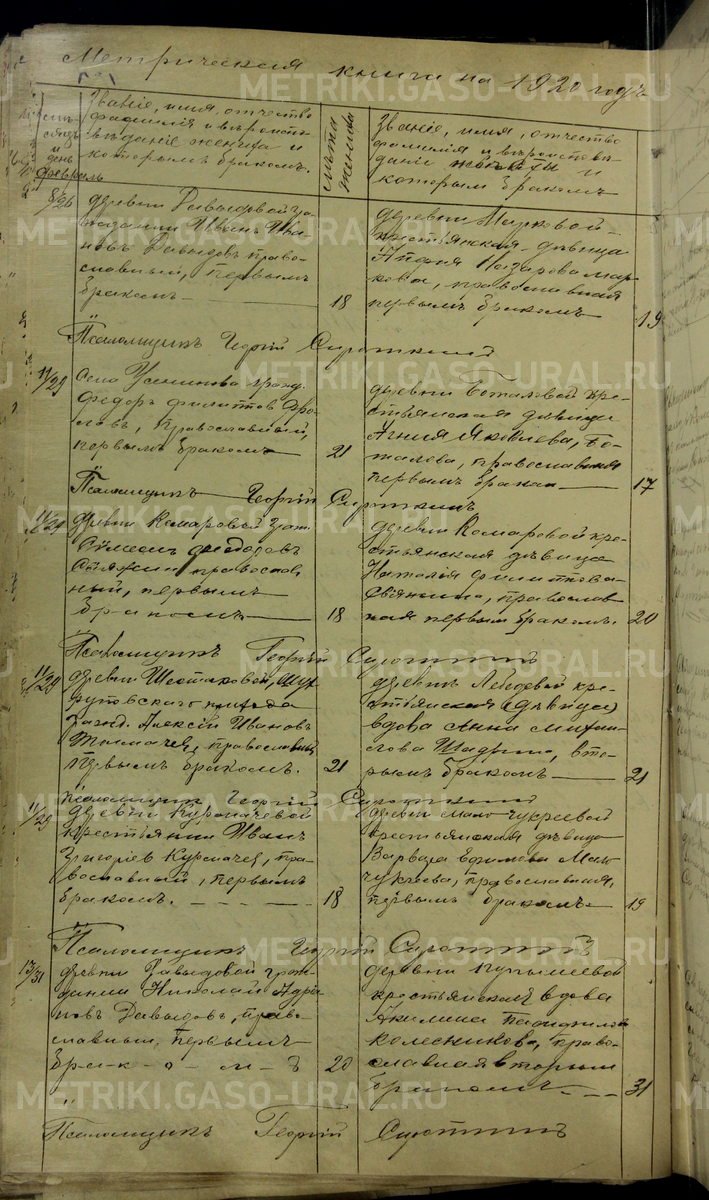 Метрическая книга на 1920 годъ
Званіе, имя, отчество
фамилія и вѣроисп-
вѣданіе жениха и
которымъ бракомъ.
мѣсяцъ
и
день
Февраль
лѣта
жениха
Званіе, имя, отчество
фамилія и вѣроиспове-
даніе невѣсты и
которымъ бракомъ
8/26
деревни Давыдовой гра-
жданинъ Иванъ Ива-
новъ Давыдовъ право-
славный, первымъ
бракомъ
18
деревни Марковой
крестьянская дѣвица
Назарова Мар-
кова, православная
первымъ бракомъ
19
Псаломщикъ Георгій Сироткинъ
11/29
Села Усенинова гражд.
Федоръ Филиппов
православный,
первымъ бракомъ
21
деревни Боталовой кре-
стьянская дѣвица
Агнія Яковлева, Бо-
талова, православная
первымъ бракомъ
17
Псаломщикъ Георгій Сироткинъ
11/29
деревни Комаровой граж.
Феодоров
православ-
ный, первымъ
бракомъ
18
деревни Комаровой кре-
стьянская дѣвица
Наталія Филиппова
православ-
ная первым браком.
20
Псаломщикъ Георгій Сироткинъ
11/29
деревни
уезда
гражд. Алексій Ивановъ
православный
первымъ бракомъ.
21
деревни Лебедевой кре-
стьянская (дѣвица)
вдова Анна Михаи-
лова Шадрина, вто-
рымъ бракомъ
21
Псаломщикъ Георгій Сироткинъ
11/29
деревни Курмачевой
крестьянин Иванъ
Григорьев Курмачев, пра-
вославный, первымъ
бракомъ.
18
деревни Мало-Чукреевой
крестьянская дѣвица
Варвара Ефимова Мало-
чукреева, православная,
первымъ бракомъ
19
Псаломщикъ Георгій Сироткинъ
13/31
деревни Давыдовой граж-
данин Николай Андрія-
новъ Давыдовъ, право-
славный, первымъ
бракомъ
20
деревни
крестьянская вдова
Акилина Памфилова
Колесникова, право-
славная вторым
браком
31
Псаломщикъ Георгій Сироткинъ
METRIKI.GASO-URAL.RU